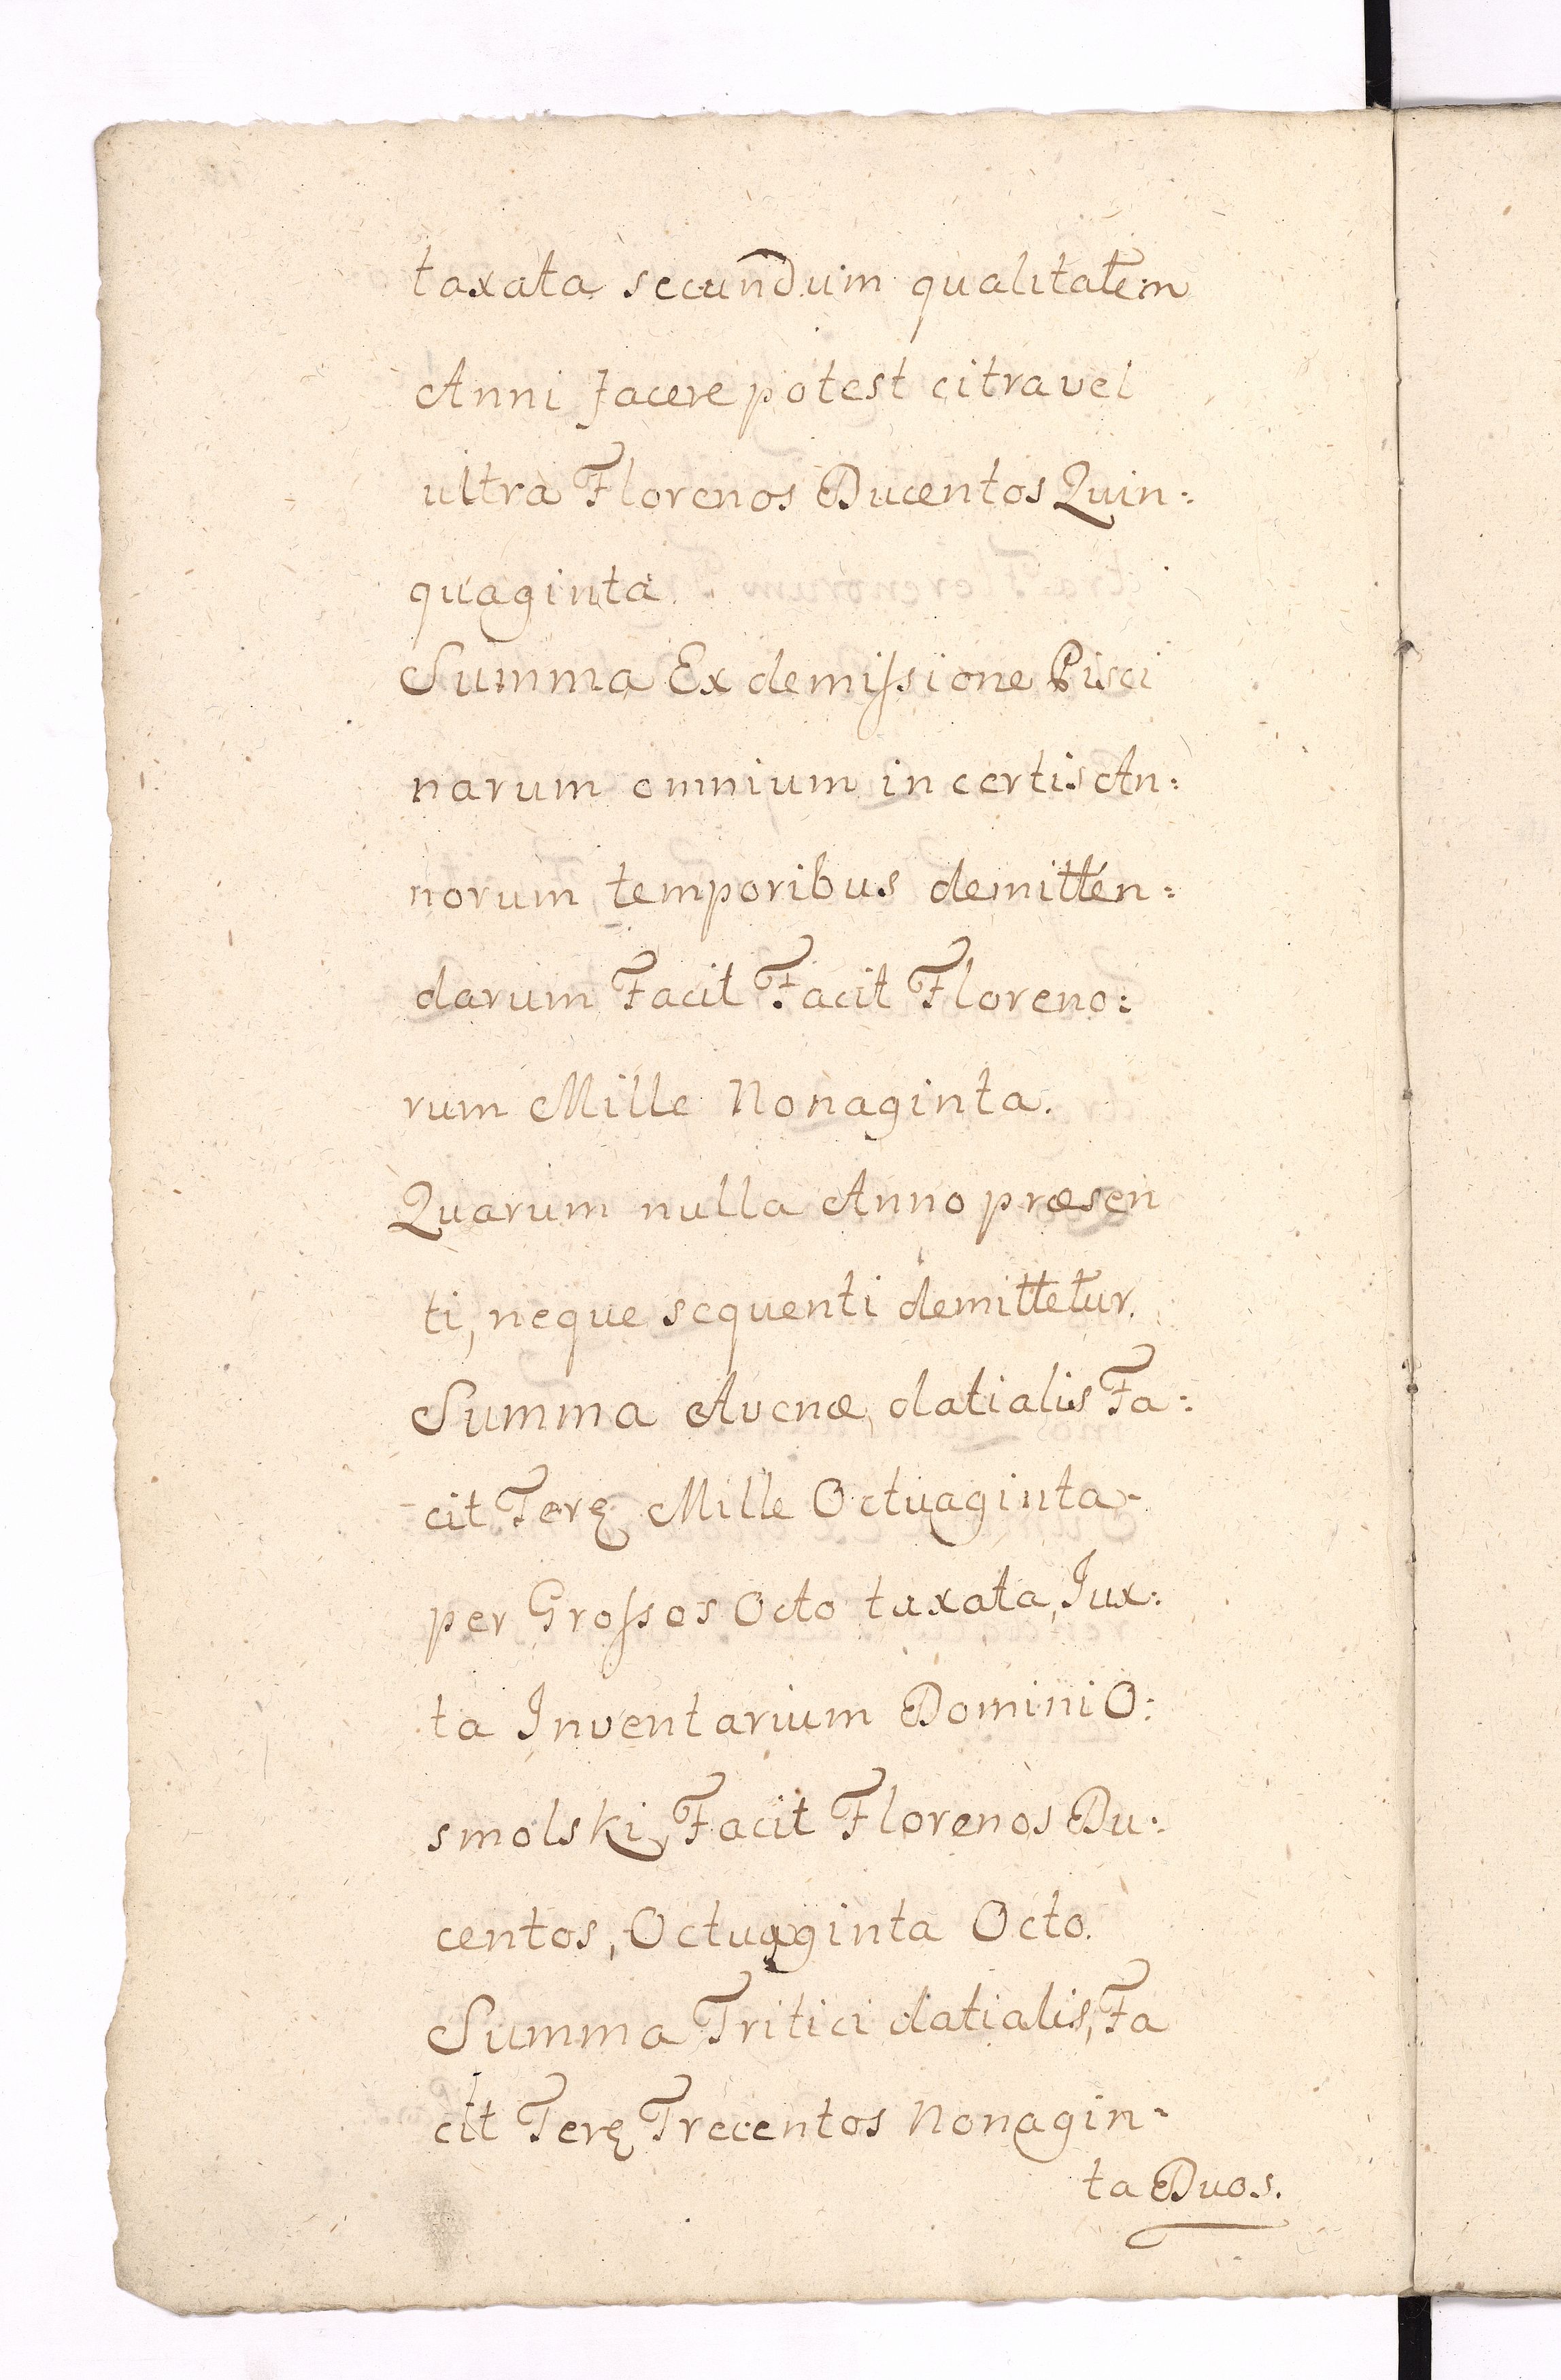 taxata secundum qualitatem
Anni facere potest citra vel
ultra Florenos Ducentos Quin:
quaginta
Summa Ex demiſsione Pisci
narum omnium in certis An:
norum temporibus demitten:
darum Facit Facit Floreno:
rum Mille Nonaginta.
Quarum nulla Anno præsen
ti, neque sequenti demittetur.
Summa Avenæ datialis Fa:
cit Terę Mille Octuaginta
per Groſsos Octo taxata, Jux:
ta Inventarium Domini O:
smolski, Facit Florenos Du:
centos, Octuaginta Octo.
Summa Tritici datialis, Fa
cit Terę Trecentos Nonagin:
ta Duos.